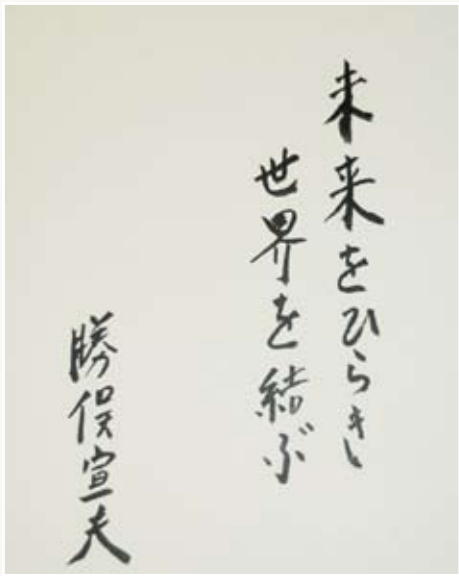 未来をひらき
世界を結ぶ
勝俣宣夫